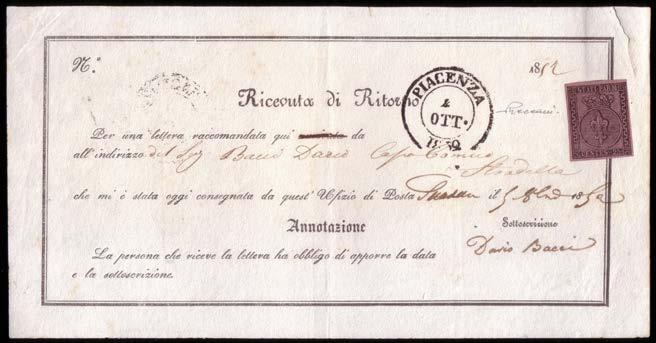 N.° 1852
PIACENZA
4
OTT.
1852
STATI PARM.
CENTES. 25
Ricevuta di Ritorno
Per una lettera raccomandata qui da
all'indirizzo del Sig Bacci Dario Capo Comico
Stradella
che mi è stata oggi consegnata da quest'Ufizio di Posta il 5 1852
Annotazione
Sottoscrizione
Dario Bacci
La persona che riceve la lettera ha obbligo di apporre la data
e la sottoscrizione.